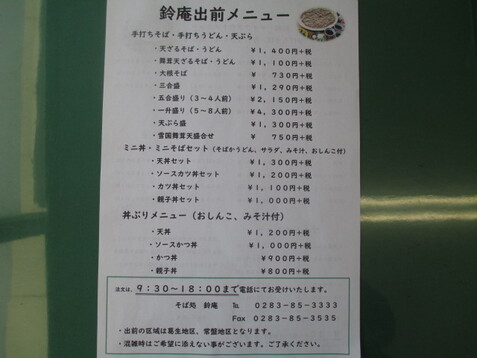 鈴庵出前メニュー
手打ちそば・手打ちうどん・天ぷら
・天ざるそば・うどん ¥1,400+税
・舞茸天ざるそば・うどん ¥1,100+税
・大根そば ¥ 730+税
・三合盛 ¥1,290+税
・五合盛り（3～4人前） ¥2,150+税
・一升盛り（5～8人前） ¥4,300+税
・天ぷら盛 ¥1,300+税
・雪国舞茸天盛合せ ¥ 750+税
ミニ丼・ミニそばセット（そばかうどん、サラダ、みそ汁、おしんこ付）
・天丼セット ¥1,300+税
・ソースカツ丼セット ¥1,200+税
・カツ丼セット ¥1,100+税
・親子丼セット ¥1,000+税
丼ぶりメニュー（おしんこ、みそ汁付）
・天丼 ¥1,200+税
・ソースかつ丼 ¥1,000+税
・かつ丼 ¥900+税
・親子丼 ¥800+税
注文は、9:30～18:00まで電話にてお受けいたします。
そば処 鈴庵 ℡ 0283-85-3333
Fax 0283-85-3535
・出前の区域は葛生地区、常盤地区となります。
・混雑時はご希望に添えない事がございます。ご了承ください。